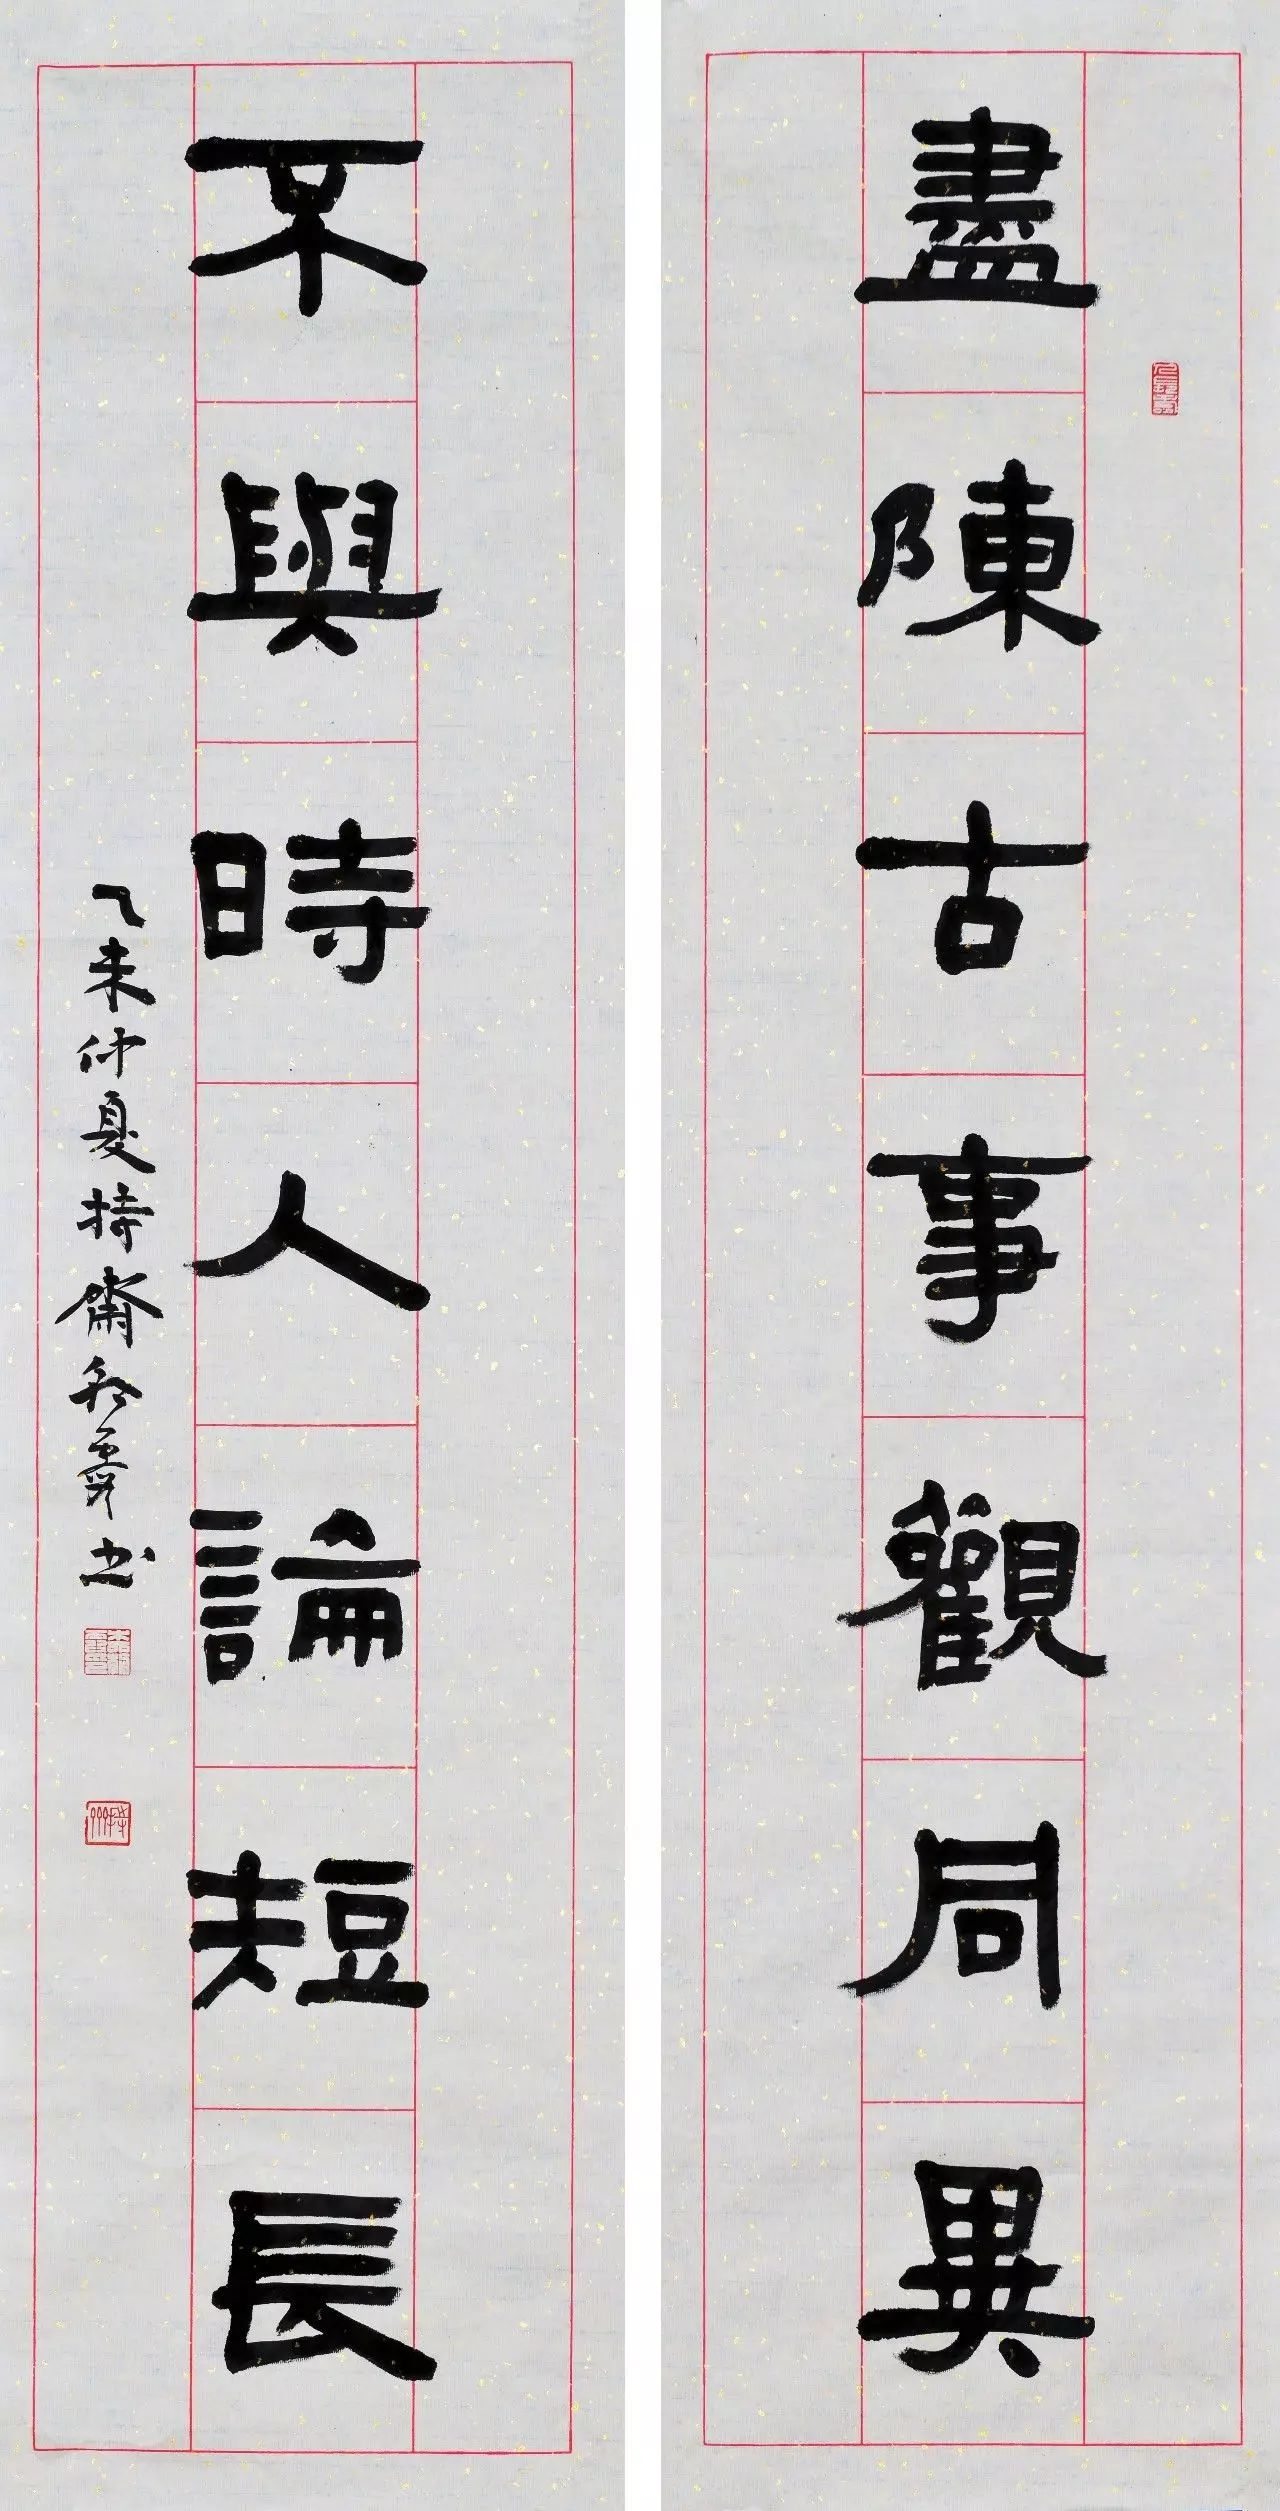 盡陳古事觀同異
不與時人論短長
乙未仲夏持齋
書